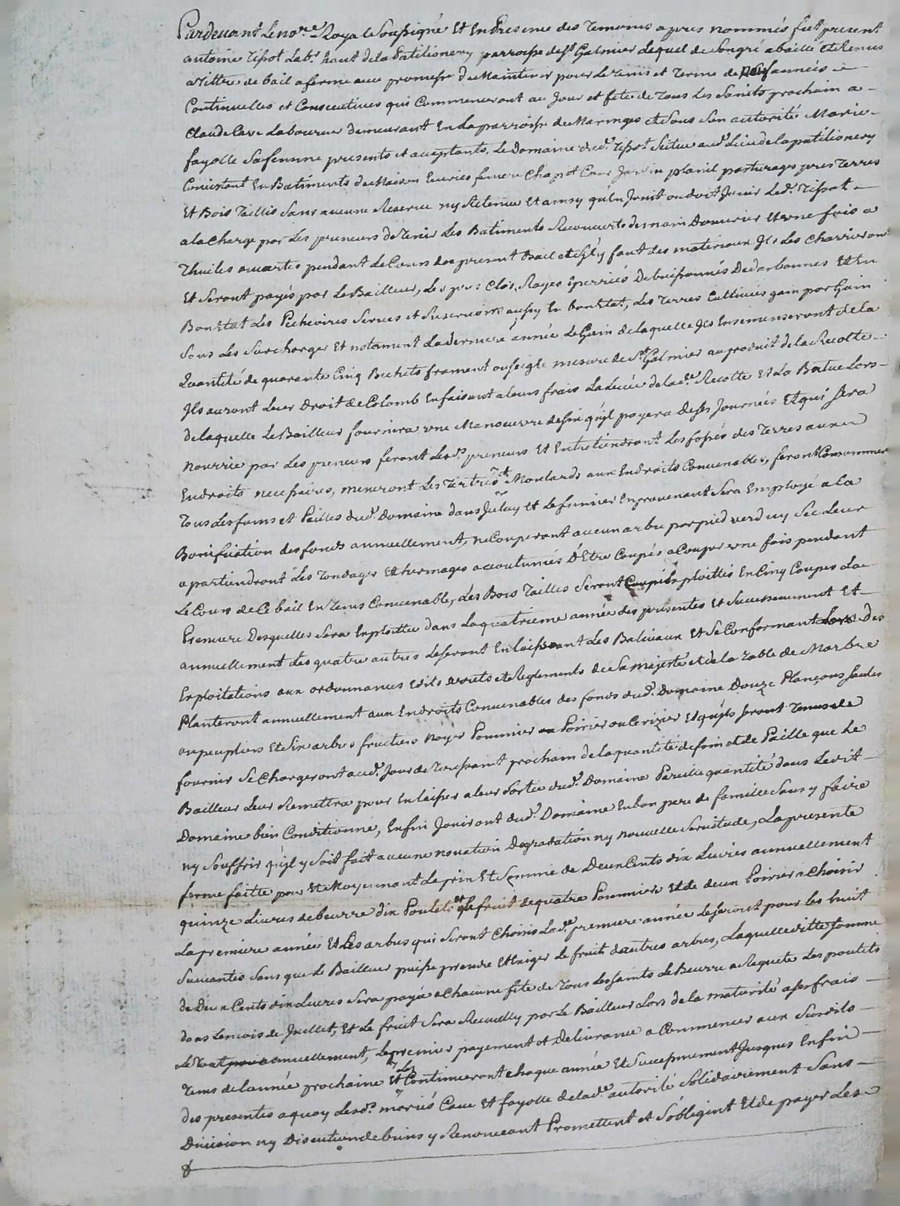 Pardevant Le no.re Royal Soussigné Et En Présence des Temoins apres nommés fut present
antoine Tissot Lab.r haut de la Patilionery parroisse de S.t Galmier Lequel de son gré a baillé et Remis
a tittre de bail a ferme aux promesse de Maintenir pour Le tems et Terme de neuf années
Continuelles et Consecutives qui Commenceront au Jour et fête de Tous Les Saints prochain a
Claude Cave Laboureur demeurant En La parroisse de Maringes et Sous Son autorité Marie
fayolle Sa femme presents et acceptants, Le Domaine dud. Tissot Scitué aud. Lieu de la patilionery
Consistant En Batiments de Maison Ecuries feniere Chapot Cour Jardin plainil pasturages pres Terres
Et Bois Taillis Sans aucune Reserve ny Retenue Et ainsy qu'en Jouit ou doit Jouir Led. Tissot
a la Charge par Les preneurs de Tenir Les Batiments Recouverts de main Douvrier Une fois a
Thuiles ouvertes pendant Le Cours du present Bail et S'il y faut Des matériaux Ils Les Charrieront
Et Seront payés par Le Bailleur, Les prés Clos, Rayés Eperriés Debuissonnés Dedarbonnés Et En
Bon Etat Les Pecheoires Serves et aussy En bon Etat, Les Terres Cultivées gain par Gain
Sans Les Surcharger Et notament La derniere année Le Gain de laquelle Ils Ensemenseront de la
quantité de quarante Cinq Bichets froment ou Seigle mesure de S.t Galmier au produit de la Recolte
Ils auront Leur Droit de Colomb En faisant a leurs frais La Levée de lad.e Recolte Et La Batue Lors
de laquelle Le Bailleur fournira une Manoeuvre qu'il payera De Ses Journées Et qui Sera
nourrie par Les preneurs feront Lesd. preneurs Et Entretiendront Les fossés des Terres aux
Endroits necessaires, meneront Les Tertres et Moulards aux Endroits Convenables, feront Consommer
Tous Les foins et Pailles dud. Domaine dans Iceluy et Le fumier En provenant Sera Employé a la
Bonification des fonds annuellement, ne Couperont aucun arbre par pied verd ny Sec Leur
apartiendront Les Tondages Et hermages accoutumés D'Etre Coupés a Couper une fois pendant
Le Cours de Ce bail En tems Convenable, Les Bois Taillis Seront Exploittés En Cinq Coupes La
Premiere Desquelles Sera Exploittée dans La quatrieme année des presentes Et Successivement Et
annuellement Les quatre autres Le Seront En laissant Les Baliveaux Et Se Conformant Lors des
Exploitations aux ordonnances Edits arrets et Reglements de Sa majesté et de la Table de Marbre
Planteront annuellement aux Endroits Convenables des fonds dud. Domaine Douze Plançons Saules
ou peupliers Et Six arbres fruitiers noyer Pommier ou Poirier ou Cerizier Et qu'ils Seront Tenus de
fournir Se Chargeront aud. Jour de Toussaint prochain de la quantité de foin et de Paille que Le
Bailleur Leur Remettra pour En laisser a leur Sortie dud. Domaine Pareille quantité dans Ledit
Domaine bien Conditionné, Enfin Jouiront dud. Domaine En bon pere de famille Sans y faire
ny Souffrir qu'il y Soit fait aucune novation Degradation ny nouvelle Servitude, La presente
ferme faitte pour Et Moyennant Le prix Et Somme de Deux Cents dix Livres annuellement
quinze Livres de beurre dix Poulets Et Le fruit de quatre Pommiers Et de deux Poiriers a Choisir
La premiere année Et Les arbres qui Seront Choisis Lad.e premiere année Le Seront pour Les huit
Suivantes Sans que Le Bailleur puisse prendre Et Exiger Le fruit d'autres arbres, Laquelle ditte Somme
de Deux Cents dix Livres Sera payée a Chacune fête de Tous Les Saints Le Beurre a Requete Les poulets
dans Le mois de Juillet, Et Le fruit Sera Recueilly par Le Bailleur Lors de la maturité a Ses frais
Le Tout annuellement, Le premier payement et Delivrance a Commencer aux Susdits
Tems de l'année prochaine Et Continueront chaque année Et Successivement Jusques Enfin
des presentes a quoy Lesd. mariés Cave Et fayolle de lad. autorité Solidairement Sans
Division ny Discution de biens y Renonceant Promettent et S'obligent Et de payer Les